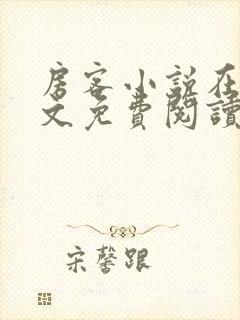 房客小说在
文免費閱讀
宋馨跟